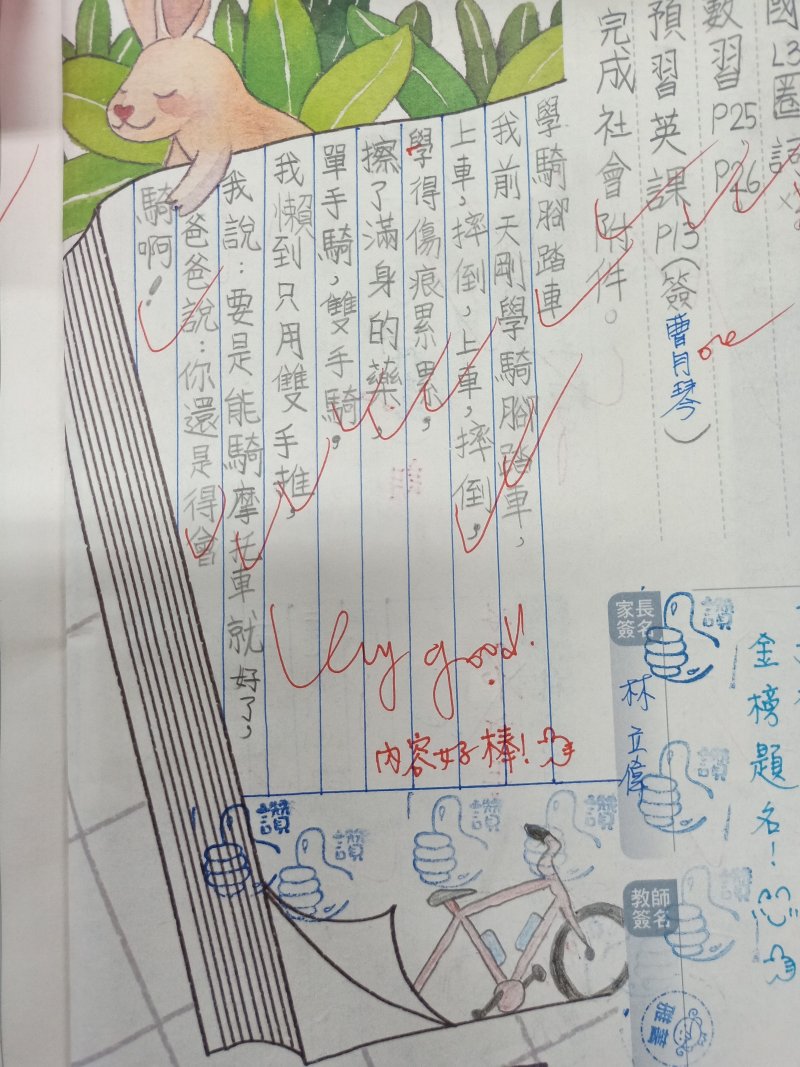 國L3圈詞
數習P25P26
預習英課P13(簽曹月琴)
完成社會附件。
one
學騎腳踏車
我前天剛學騎腳踏車,
上車,摔倒,上車,摔倒,
學得傷痕累累,
擦了滿身的藥,
單手騎,雙手騎,
我懶到只用雙手推,
我說:要是能騎摩托車就好了,
爸爸說:你還是得會
騎啊!
Very good!
內容好棒!
家長
簽名
林立偉
金榜題名!
教師
簽名
讚
讚
讚
讚
讚
讚
讚